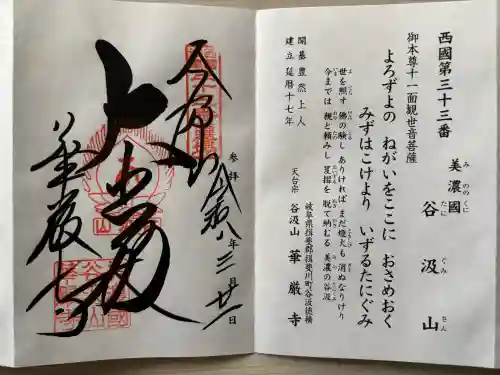 西國第三十三番
美濃國 谷汲山
みののくに たにぐみさん
御本尊十一面観世音菩薩
よろずよの ねがいをここに おさめおく
みずはこけより いずるたにぐみ
世を照す 佛の験し ありければ まだ燈火も 消ぬなりけり
今までは 親と頼みし 笈摺を 脱て納むる 美濃の谷汲
岐阜県揖斐郡揖斐川町谷汲徳積
天台宗 谷汲山 華厳寺
開基豊然上人
建立延暦十七年
参拝
八年三月廿一日
華厳寺